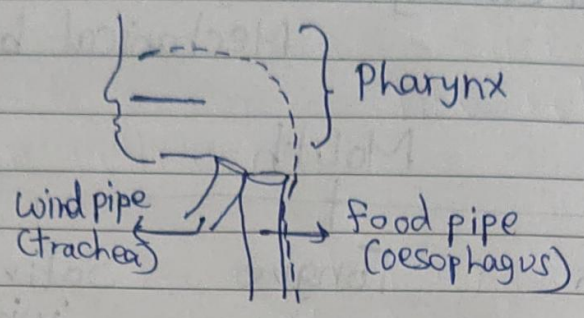 Pharynx
wind pipe
(trachea)
food pipe
(oesophagus)